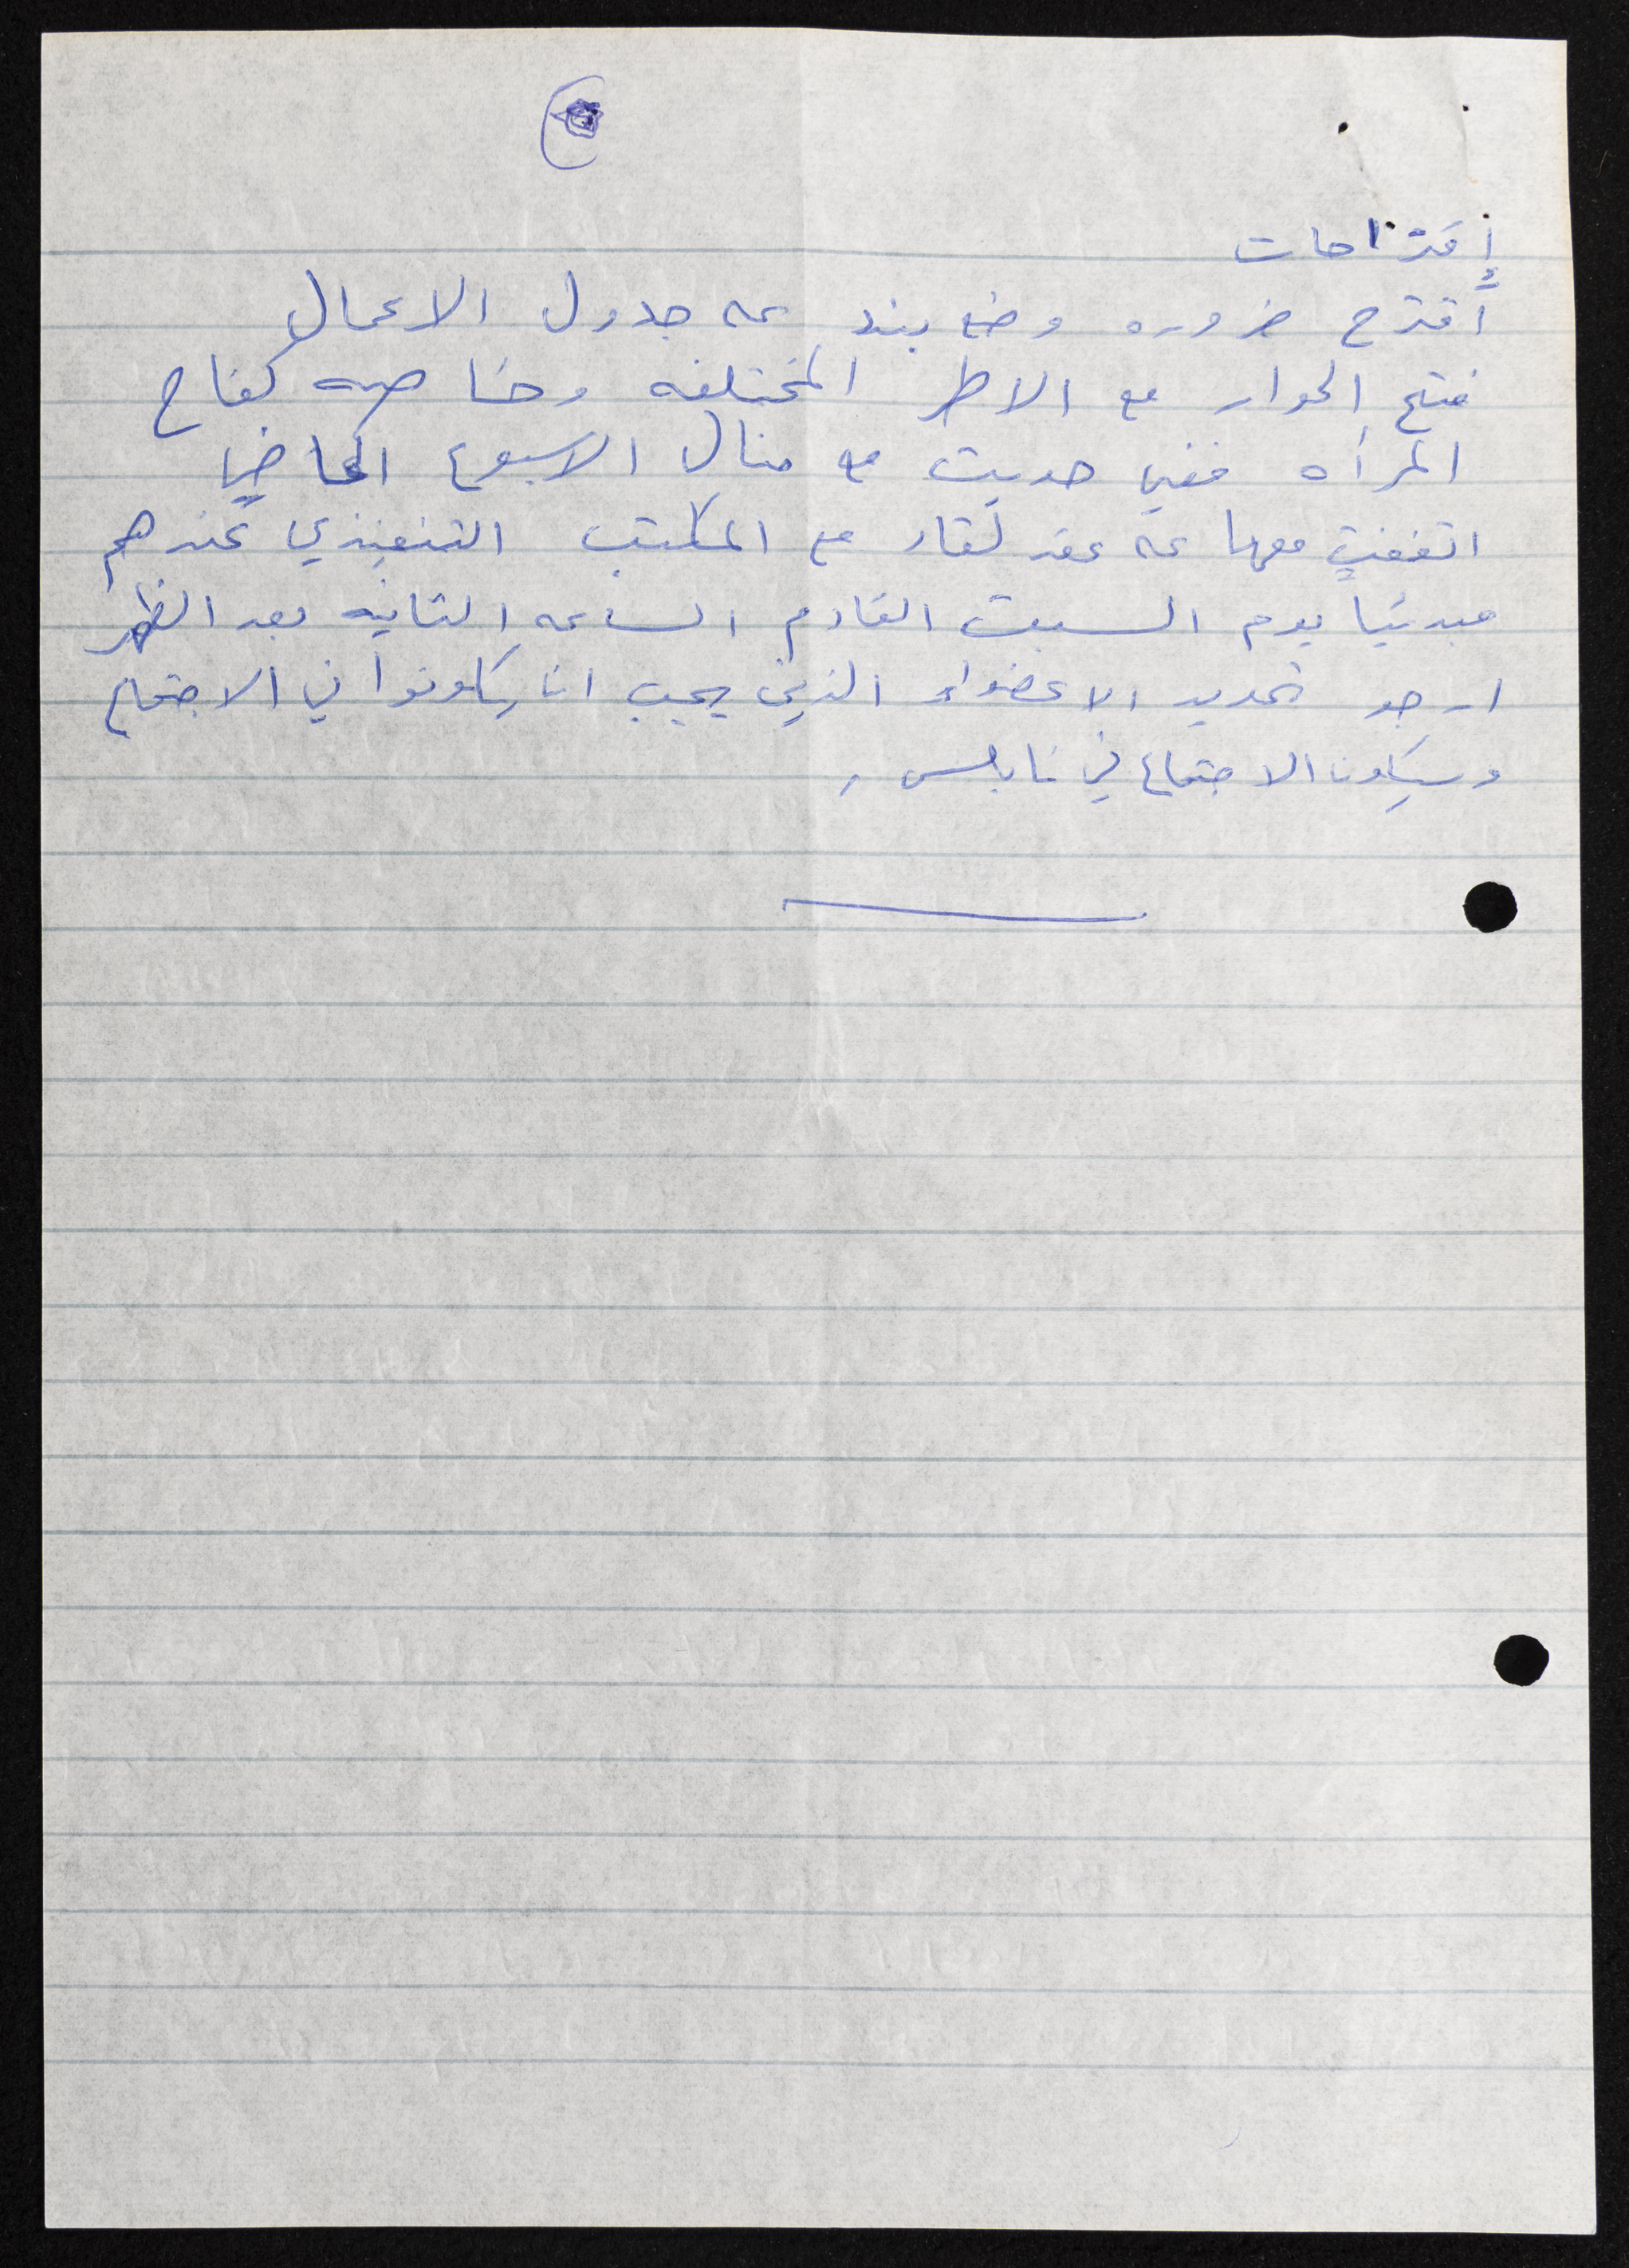 إقتراحات
أقترح ضروره وضع بند على جدول الاعمال
فتح الحوار مع الاطر المختلفه وخاصه كفاح
المرأه ففي حديث مع منال الاسبوع الماضي
اتفقت معها على عقد لقاء مع المكتب التنفيذي عندهم
مبدئيا يوم السبت القادم الساعه الثانيه بعد الظهر
ارجو تحديد الاعضواء الذين يجب ان يكونوا في الاجتماع
وسيكون الاجتماع في نابلس ,